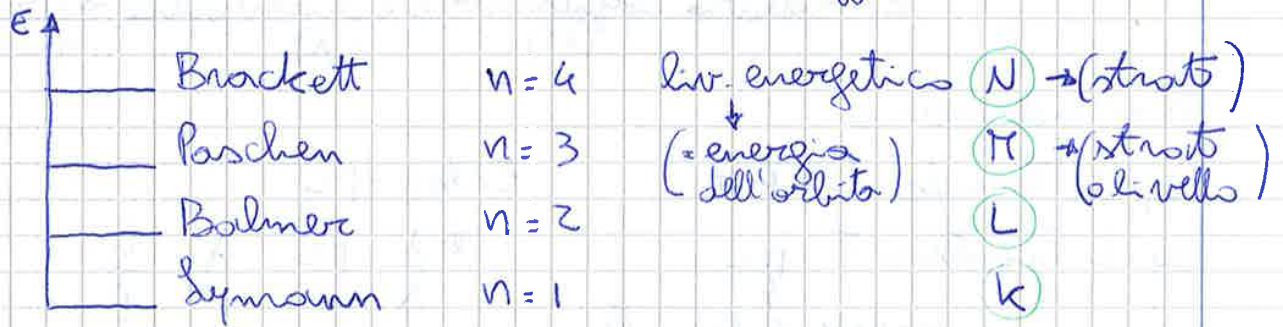 E
Brackett n = 4 liv. energetico N → (strato)
Paschen n = 3 (= energia dell'orbita) M → (strato o livello)
Balmer n = 2 L
Lymann n = 1 K